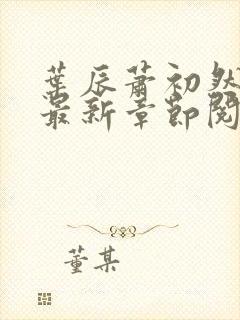 叶辰萧初然
最新章节阅
董某